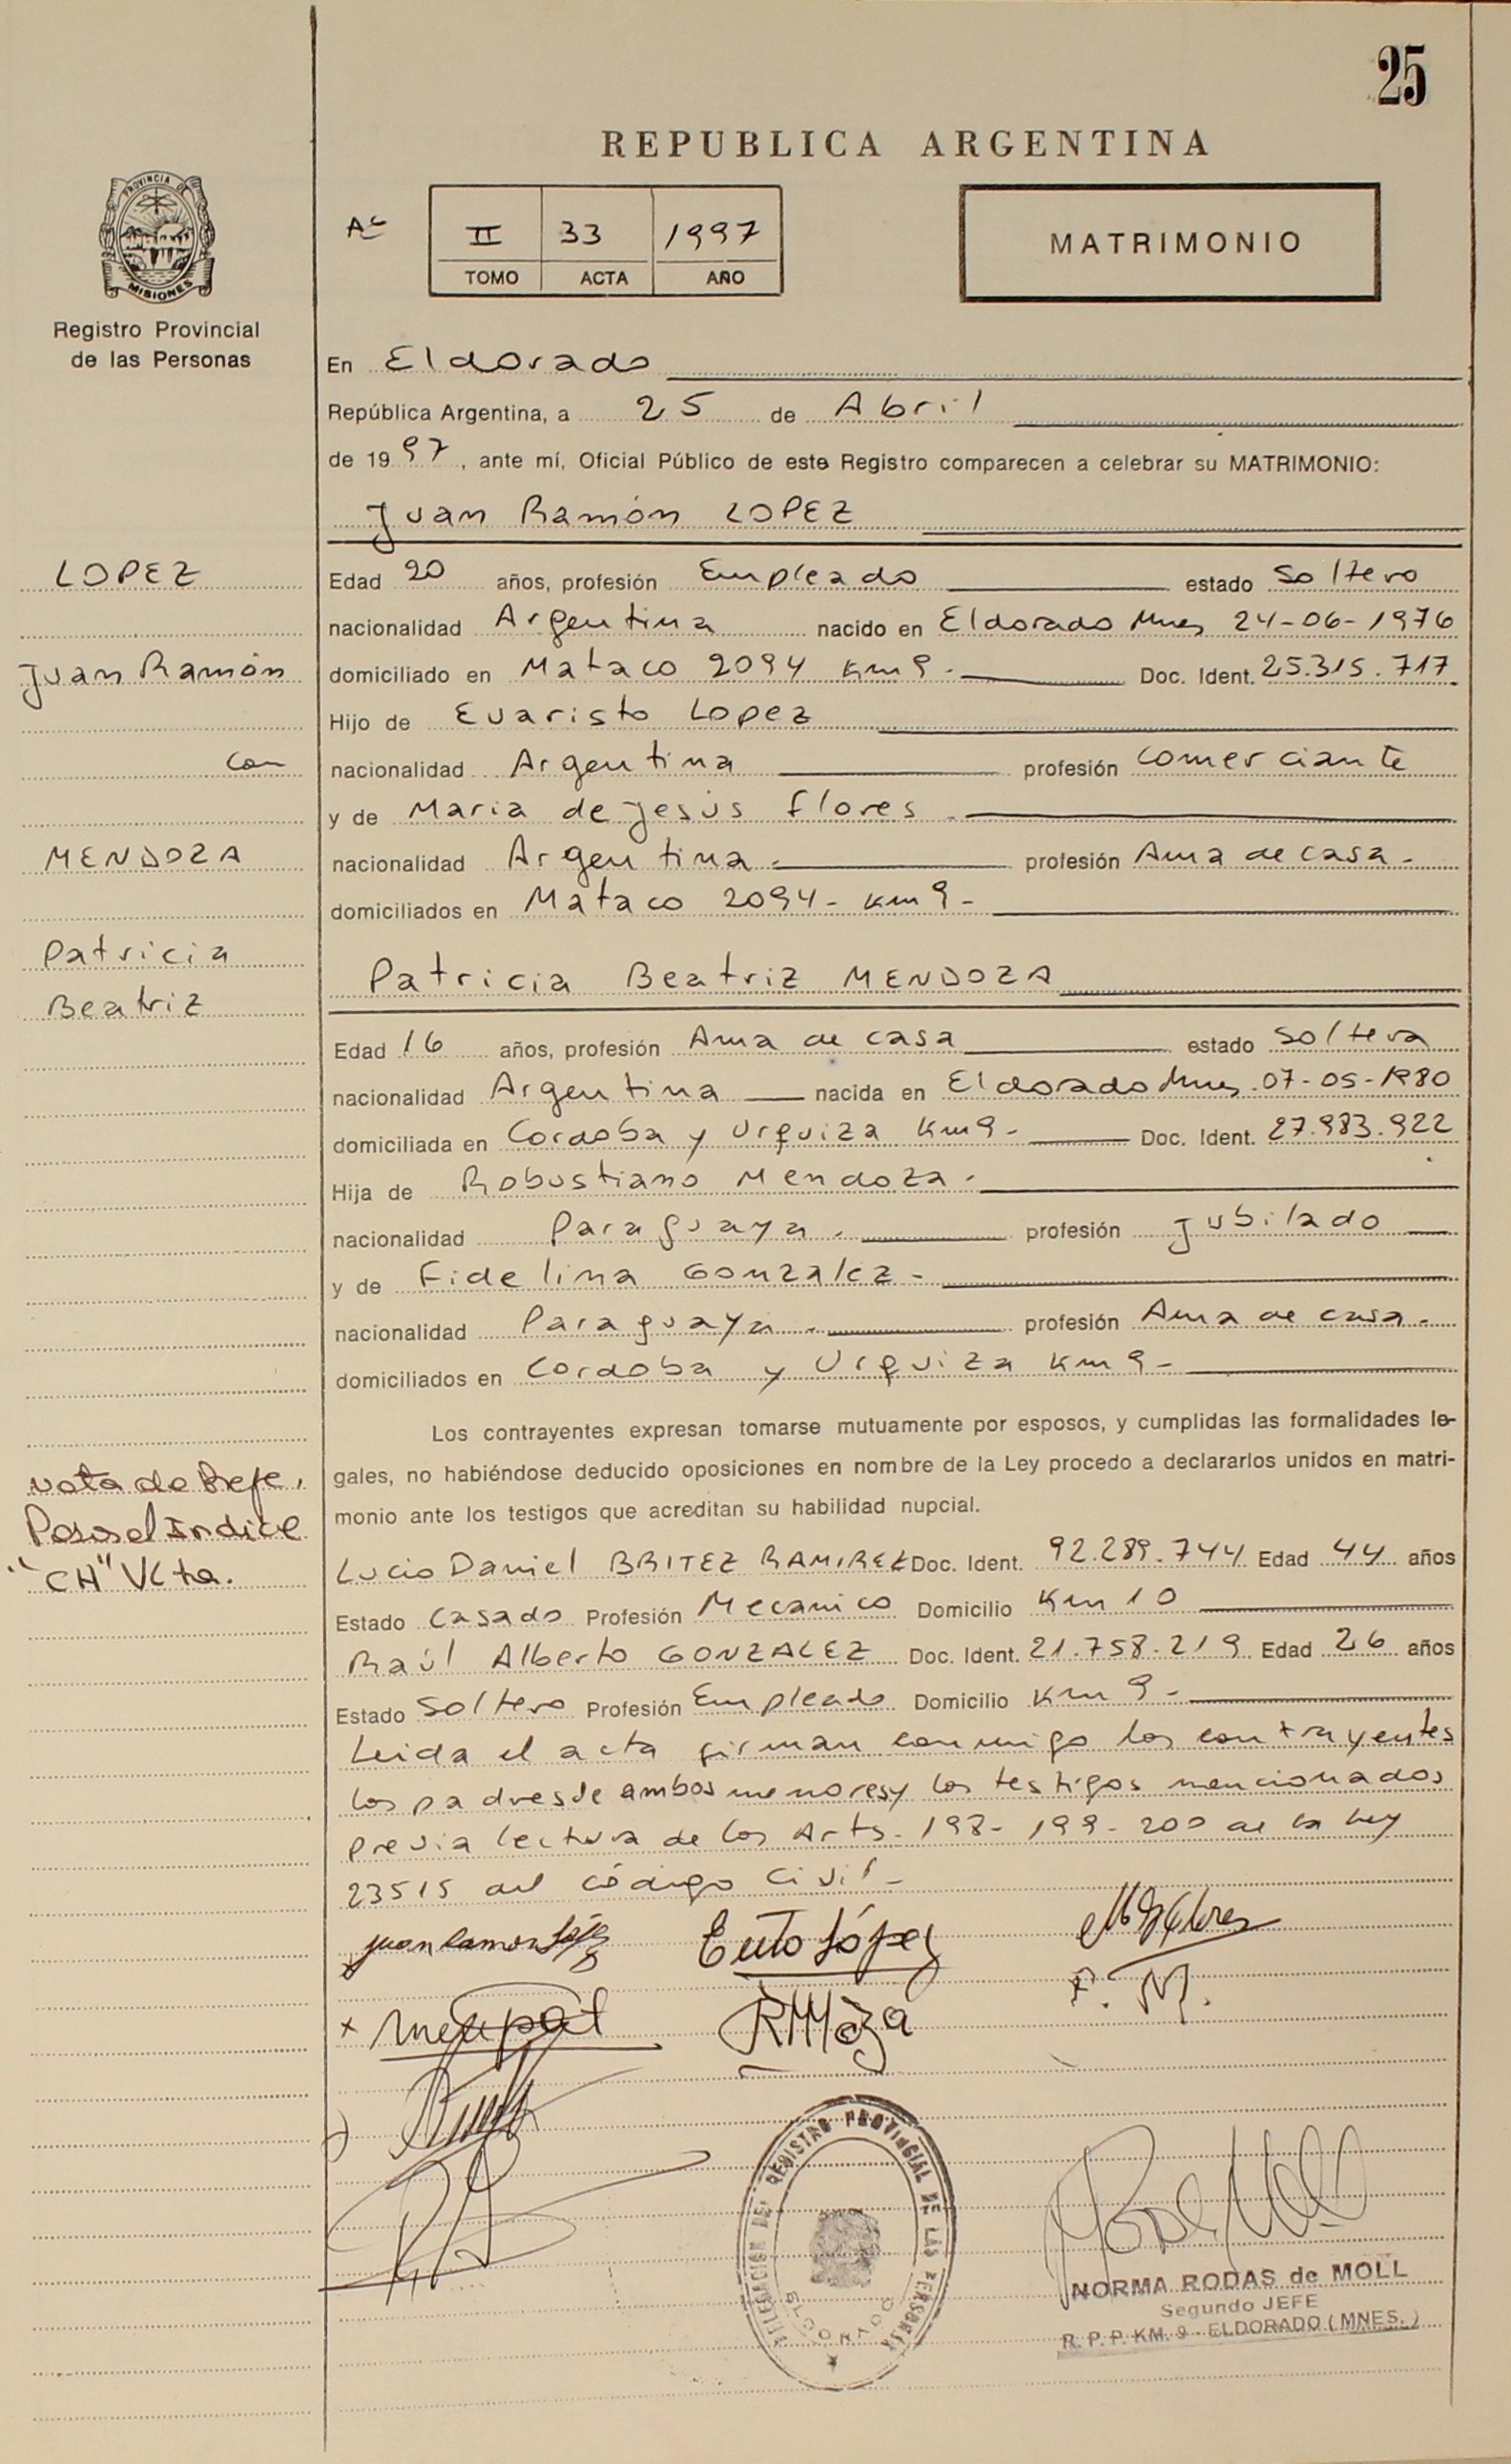 25
REPUBLICA ARGENTINA
PROVINCIA DE
MISIONES
Registro Provincial
de las Personas
II 33 1997
TOMO ACTA AÑO
MATRIMONIO
En Eldorado
República Argentina, a 25 de Abril
de 1997, ante mí, Oficial Público de este Registro comparecen a celebrar su MATRIMONIO:
Juan Ramón LOPEZ
LOPEZ
Juan Ramón
con
MENDOZA
Patricia
Beatriz
Edad 20 años, profesión Empleado estado Soltero
nacionalidad Argentina nacido en Eldorado Mnes 24-06-1976
domiciliado en Mataco 2094 km 9.- Doc. Ident. 25.315.717
Hijo de Evaristo Lopez
nacionalidad Argentina profesión Comerciante
y de Maria de Jesús Flores.
nacionalidad Argentina.- profesión Ama de casa-
domiciliados en Mataco 2094- km 9-
Patricia Beatriz MENDOZA
Edad 16 años, profesión Ama de casa estado Soltera
nacionalidad Argentina nacida en Eldorado Mnes 07-05-1980
domiciliada en Cordoba y Urquiza km 9- Doc. Ident. 27.983.922
Hija de Robustiano Mendoza.
nacionalidad Paraguaya. profesión Jubilado
y de Fidelina Gonzalez-
nacionalidad Paraguaya. profesión Ama de casa.
domiciliados en Cordoba y Urquiza km 9-
Los contrayentes expresan tomarse mutuamente por esposos, y cumplidas las formalidades le-
gales, no habiéndose deducido oposiciones en nombre de la Ley procedo a declararlos unidos en matri-
monio ante los testigos que acreditan su habilidad nupcial.
nota de Refe.
Indice
"CH" Vlta.
Lucio Daniel BRITEZ RAMIREZ Doc. Ident. 92.289.744 Edad 44 años
Estado Casado Profesión Mecanico Domicilio Km 10
Raúl Alberto GONZALEZ Doc. Ident. 21.758.219 Edad 26 años
Estado Soltero Profesión Empleado Domicilio Km 9-
Leida el acta firman conmigo los contrayentes
los padres de ambos menores y los testigos mencionados
previa lectura de los Arts. 198- 199- 200 de la Ley
23515 del código Civil-
Juan Ramon López
Evto López
F. M.
DELEGACION DEL REGISTRO PROVINCIAL DE LAS PERSONAS
ELDORADO
NORMA RODAS de MOLL
Segundo JEFE
R. P. P. KM. 9 - ELDORADO (MNES.)